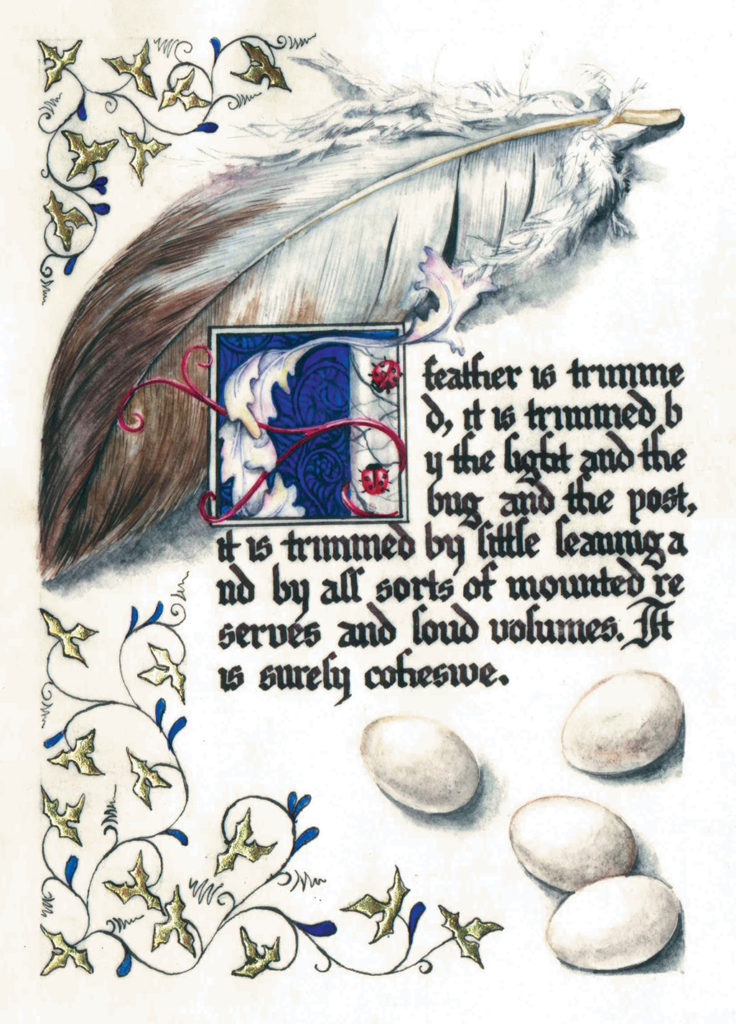 A feather is trimme
d, it is trimmed b
y the light and the
bug and the post,
it is trimmed by little leaning a
nd by all sorts of mounted re
serves and loud volumes. It
is surely cohesive.